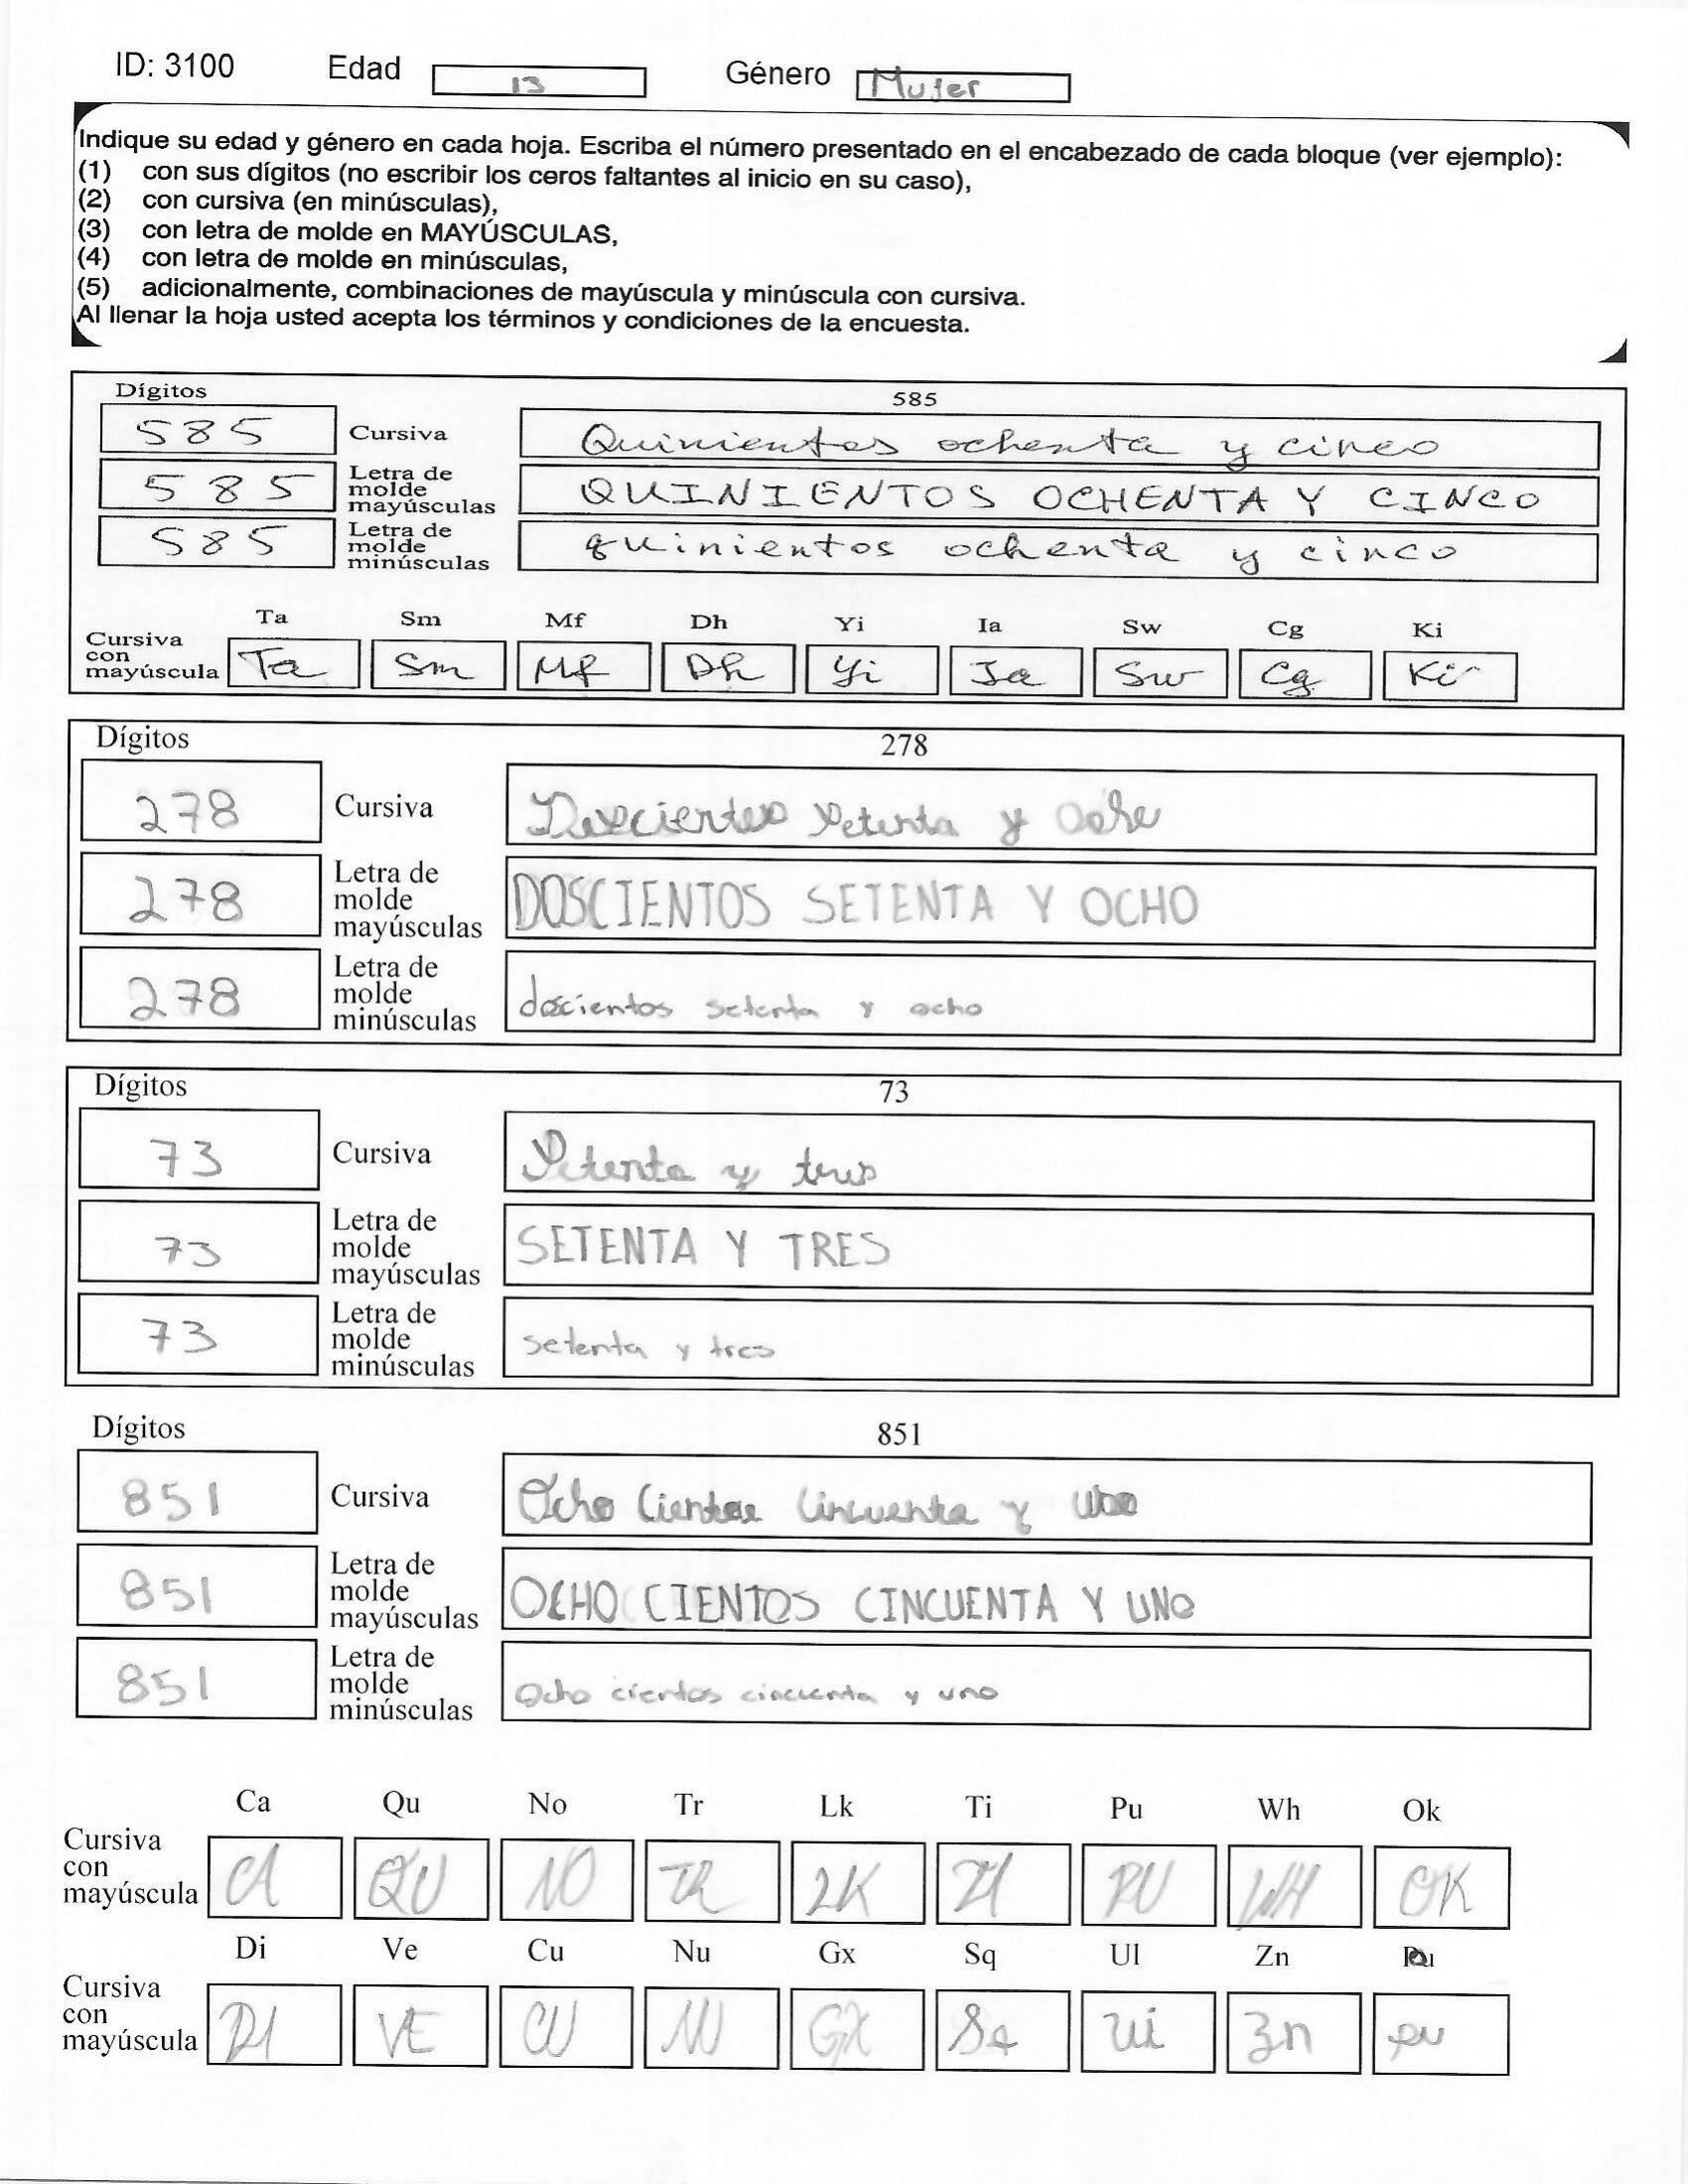 ID: 3100 Edad 13 Género Mujer
Indique su edad y género en cada hoja. Escriba el número presentado en el encabezado de cada bloque (ver ejemplo):
(1) con sus dígitos (no escribir los ceros faltantes al inicio en su caso),
(2) con cursiva (en minúsculas),
(3) con letra de molde en MAYÚSCULAS,
(4) con letra de molde en minúsculas,
(5) adicionalmente, combinaciones de mayúscula y minúscula con cursiva.
Al llenar la hoja usted acepta los términos y condiciones de la encuesta.
Dígitos 585
585 Cursiva Quinientos ochenta y cinco
585 Letra de molde mayúsculas QUINIENTOS OCHENTA Y CINCO
585 Letra de molde minúsculas quinientos ochenta y cinco
Ta Sm Mf Dh Yi Ia Sw Cg Ki
Cursiva con mayúscula Ta Sm Mf Dh Yi Ia Sw Cg Ki
Dígitos 278
278 Cursiva Doscientos setenta y Ocho
278 Letra de molde mayúsculas DOSCIENTOS SETENTA Y OCHO
278 Letra de molde minúsculas doscientos setenta y ocho
Dígitos 73
73 Cursiva Setenta y tres
73 Letra de molde mayúsculas SETENTA Y TRES
73 Letra de molde minúsculas setenta y tres
Dígitos 851
851 Cursiva Ocho Cientos Cincuenta y uno
851 Letra de molde mayúsculas OCHO CIENTOS CINCUENTA Y UNO
851 Letra de molde minúsculas Ocho cientos cincuenta y uno
Ca Qu No Tr Lk Ti Pu Wh Ok
Cursiva con mayúscula CA QU NO TR LK TI PU WH OK
Di Ve Cu Nu Gx Sq Ul Zn
Cursiva con mayúscula DI VE CU NU GX Sq Ui Zn